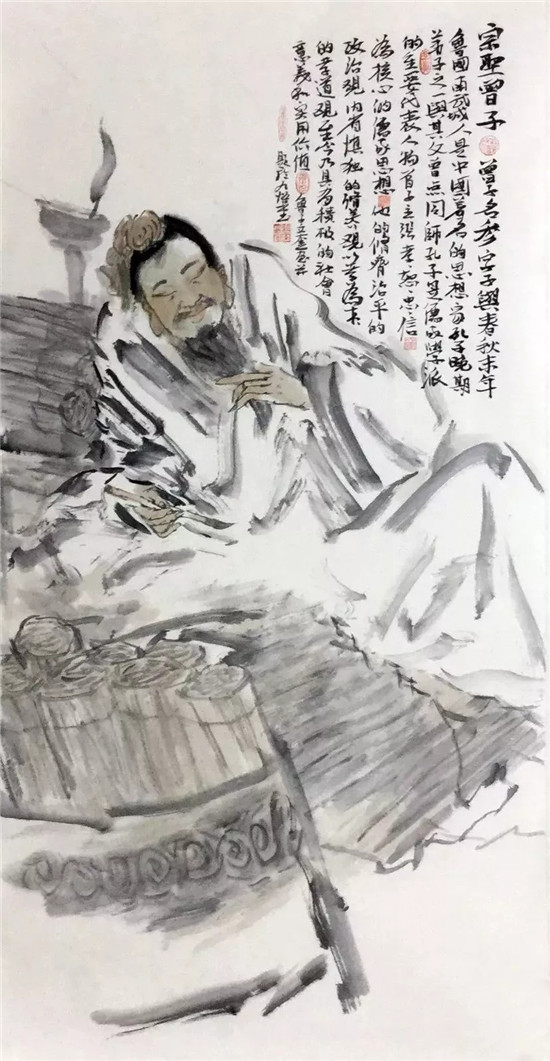 宗聖曾子 曾子名參字子輿春秋末年
魯國南武城人是中國著名的思想家孔子晚期
弟子之一與其父曾点同師孔子是儒家學派
的主要代表人物曾子主張孝恕忠信
為核心的儒家思想他的修齊治平的
政治觀内省慎独的修养觀以孝為本
的孝道觀至今乃具有積极的社會
意義和实用价值